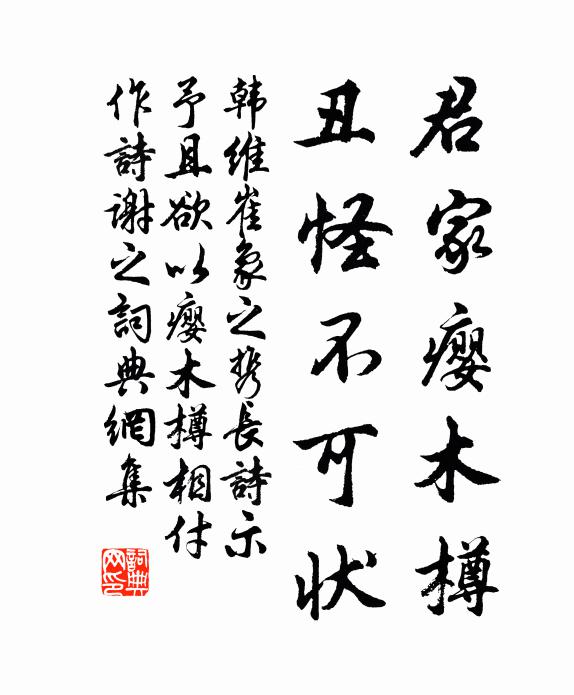 君家癭木樽
丑怪不可状
韩維崔象之携長詩示
予且欲以癭木樽相付
作詩谢之詞典網集
詞典网印